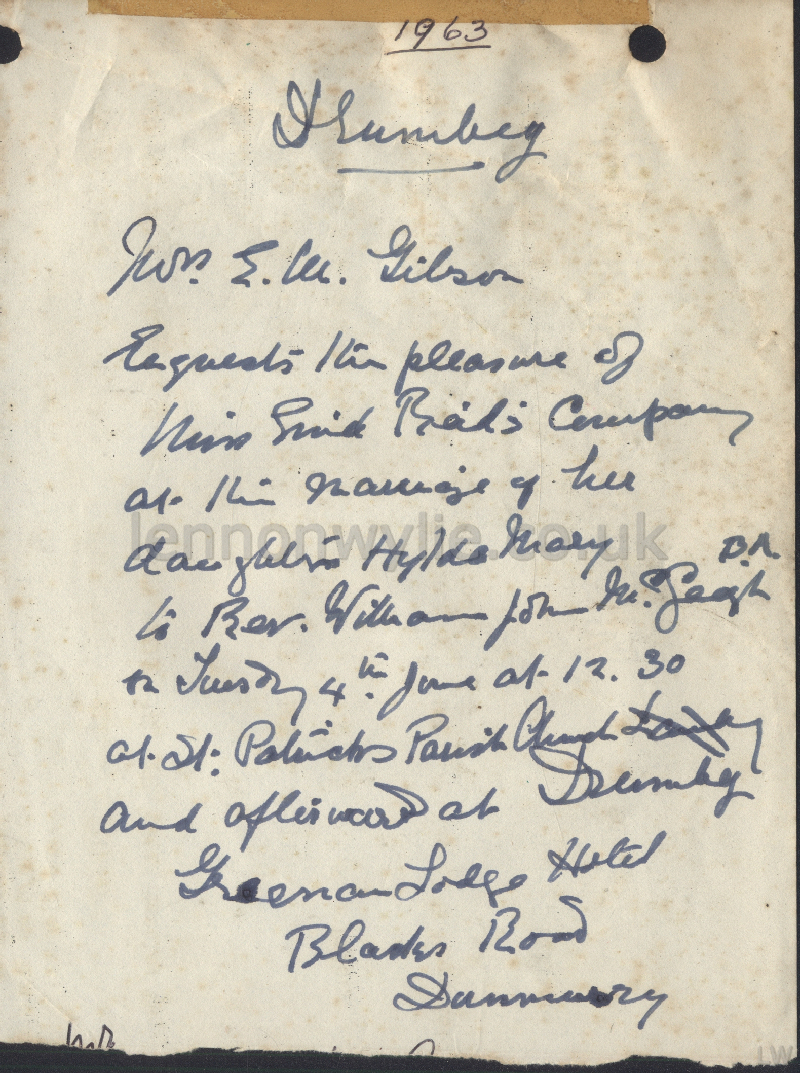 1963
Drumbeg
Mrs. E. M. Gibson
Requests the pleasure of
Miss Enid Reid's Company
at the marriage of her
daughter Hylda Mary
B.A.
to Rev. William John McGeagh
on Tuesday 4th June at 12.30
at St. Patricks Parish Church
Drumbeg
and afterward at
Greenan Lodge Hotel
Blacks Road
Dunmurry
lennonwylie.co.uk
LW